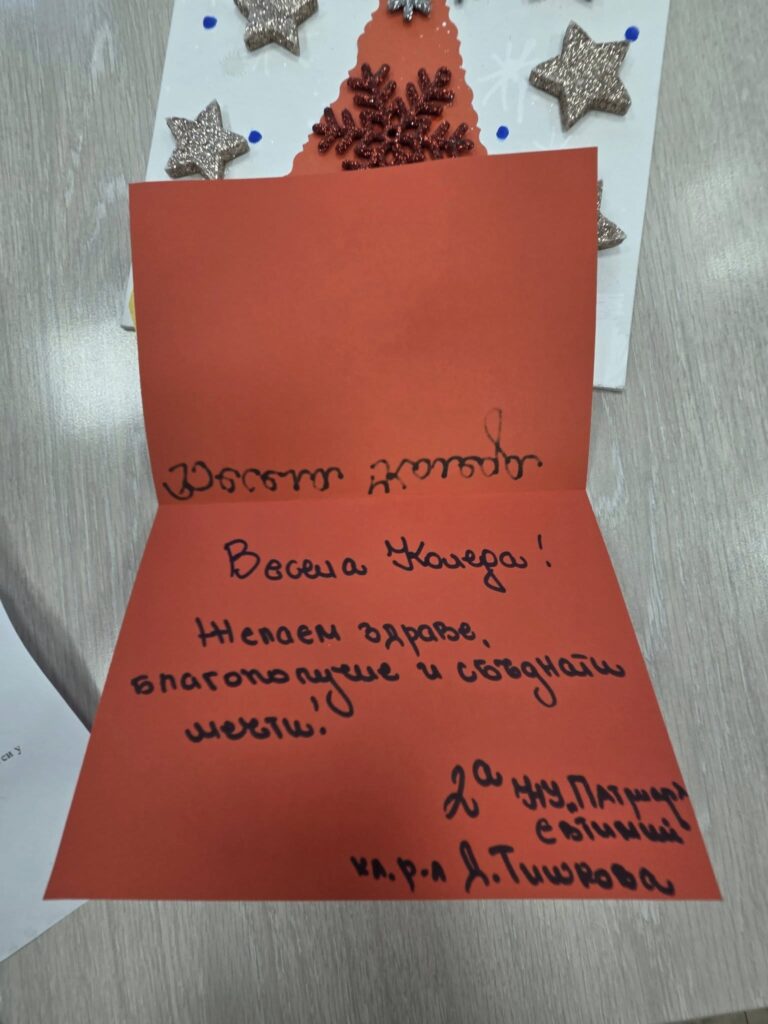 Весела Коледа
Весела Коледа!
Желаем здраве,
благополучие и сбъднати
мечти!
2а НУ „Патриарх
Евтимий“
кл. р-л Д. Тишкова
си у